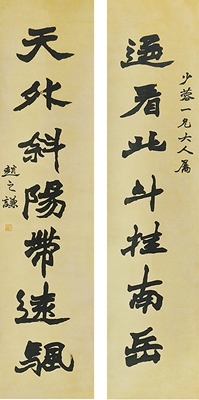 少蓉一兄大人屬
迴看北斗挂南岳
天外斜陽帶遠颿
趙之謙